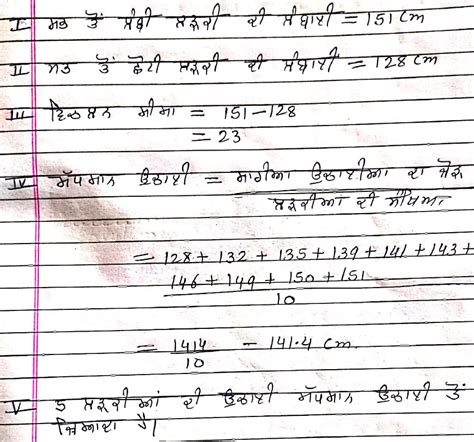 I ਸਭ ਤੋਂ ਲੰਬੀ ਲੜਕੀ ਦੀ ਲੰਬਾਈ = 151 cm
II ਸਭ ਤੋਂ ਛੋਟੀ ਲੜਕੀ ਦੀ ਲੰਬਾਈ = 128 cm
III ਵਿਚਲਨ ਸੀਮਾ = 151-128
= 23
IV ਮੱਧਮਾਨ ਉਚਾਈ = ਸਾਰੀਆਂ ਉਚਾਈਆਂ ਦਾ ਜੋੜ
ਲੜਕੀਆਂ ਦੀ ਸੰਖਿਆ
= 128 + 132 + 135 + 139 + 141 + 143 +
146 + 149 + 150 + 151
10
= 1414 - 141.4 cm.
10
V 5 ਲੜਕੀਆਂ ਦੀ ਉਚਾਈ ਮੱਧਮਾਨ ਉਚਾਈ ਤੋਂ
ਜਿਆਦਾ ਹੈ।